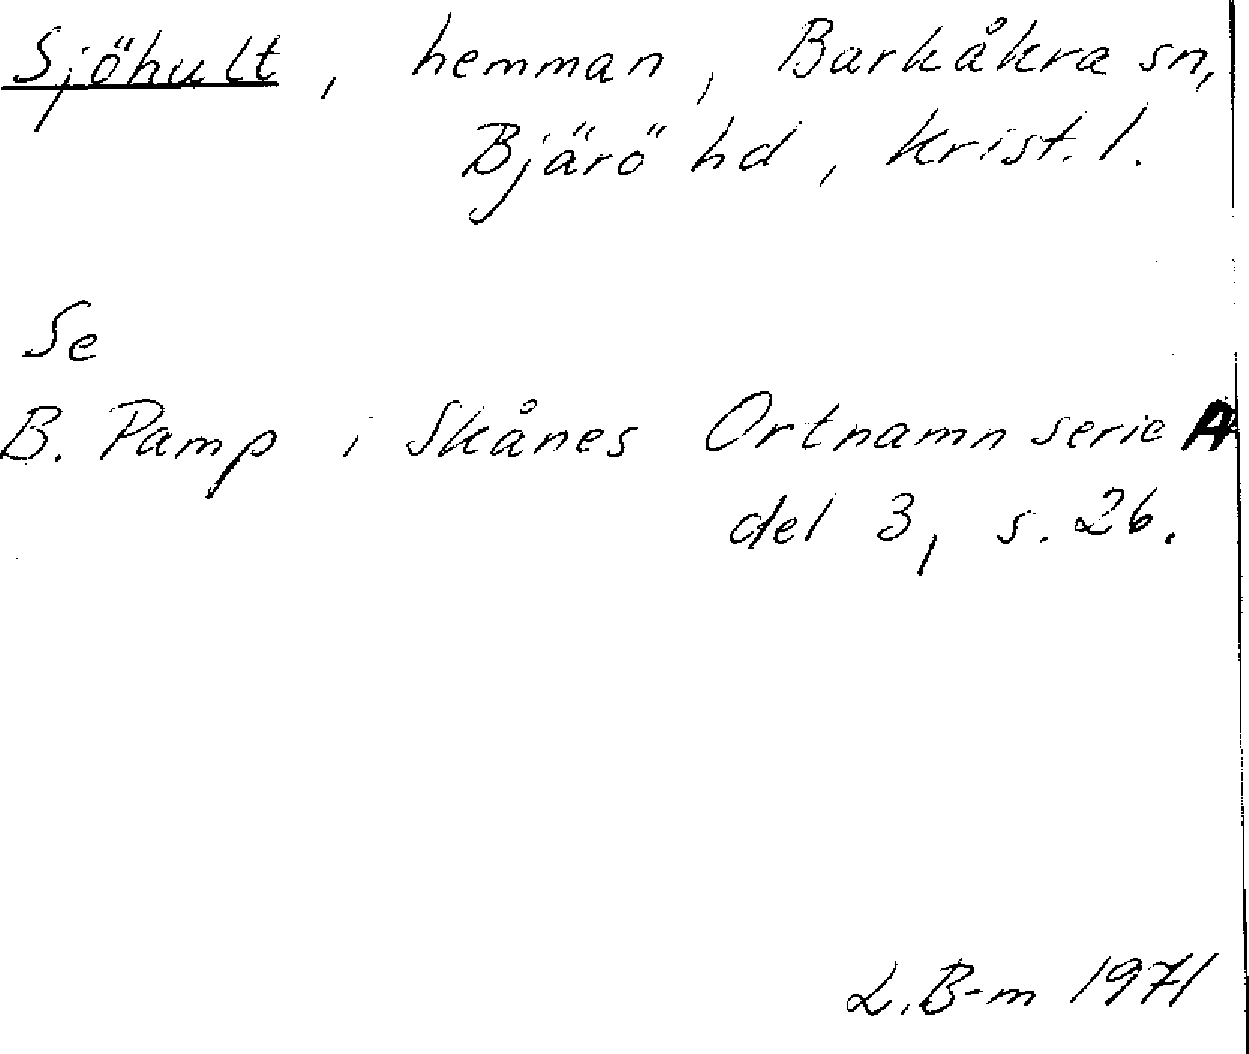 Sjöhult, hemman, Barkåkra sn,
Bjärö hd, Krist. l.
Se
B. Pamp i Skånes Ortnamn serie A
del 3, s. 26.
L. B-m 1971